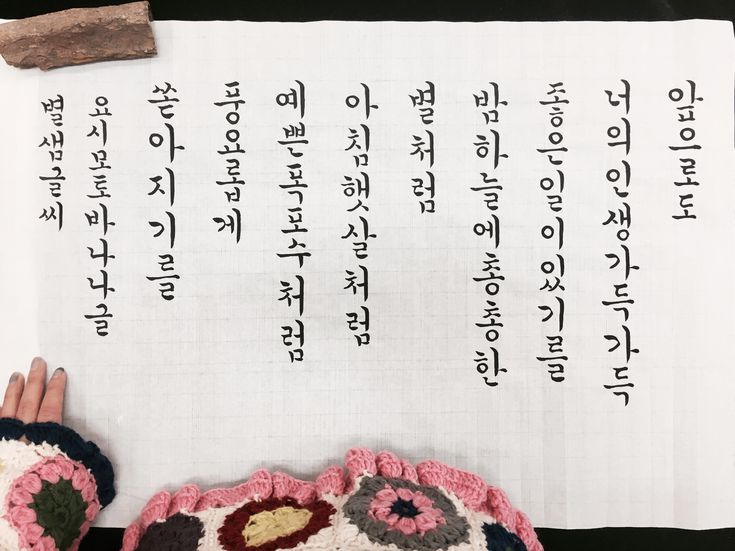 앞으로도
너의인생가득가득
좋은일이있기를
밤하늘에총총한
별처럼
아침햇살처럼
예쁜폭포수처럼
풍요롭게
쏟아지기를
요시모토바나나글
별샘글씨